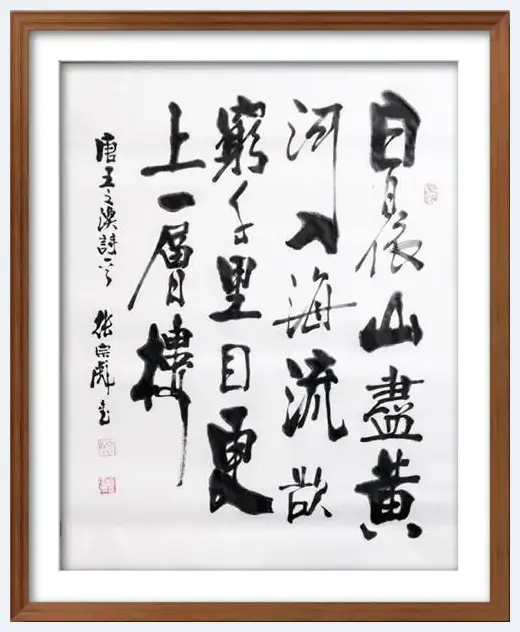 白日依山盡黃
河入海流欲
窮千里目更
上一層樓
唐王之渙詩一首 張宗彪書